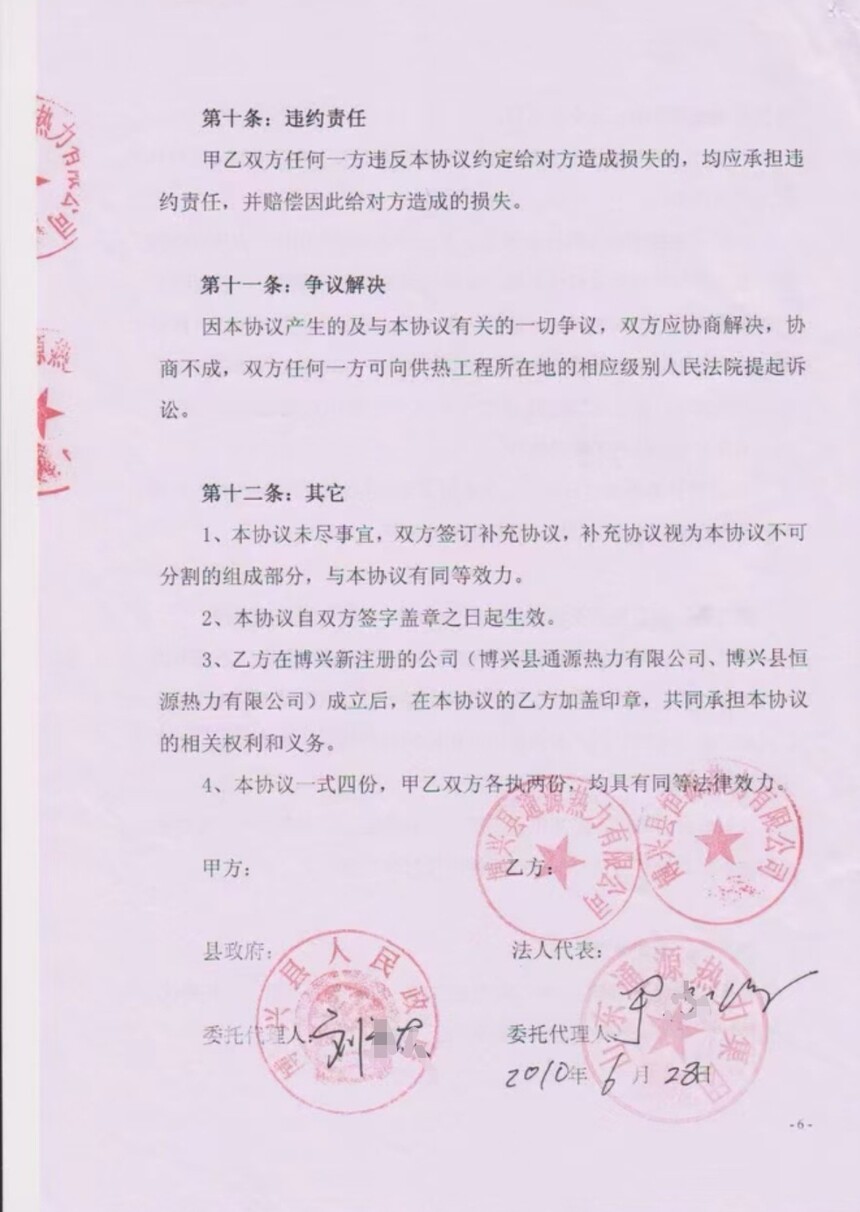 第十条：违约责任
甲乙双方任何一方违反本协议约定给对方造成损失的，均应承担违
约责任，并赔偿因此给对方造成的损失。
第十一条：争议解决
因本协议产生的及与本协议有关的一切争议，双方应协商解决，协
商不成，双方任何一方可向供热工程所在地的相应级别人民法院提起诉
讼。
第十二条：其它
1、本协议未尽事宜，双方签订补充协议，补充协议视为本协议不可
分割的组成部分，与本协议有同等效力。
2、本协议自双方签字盖章之日起生效。
3、乙方在博兴新注册的公司（博兴县通源热力有限公司、博兴县恒
源热力有限公司）成立后，在本协议的乙方加盖印章，共同承担本协议
的相关权利和义务。
4、本协议一式四份，甲乙双方各执两份，均具有同等法律效力。
博兴县通源热力有限公司
博兴县恒源热力有限公司
甲方： 乙方：
县政府： 法人代表：
博兴县人民政
山东通源热力集团
委托代理人： 委托代理人：
刘
2010年6月28日
热力有限公司
源热
-6-